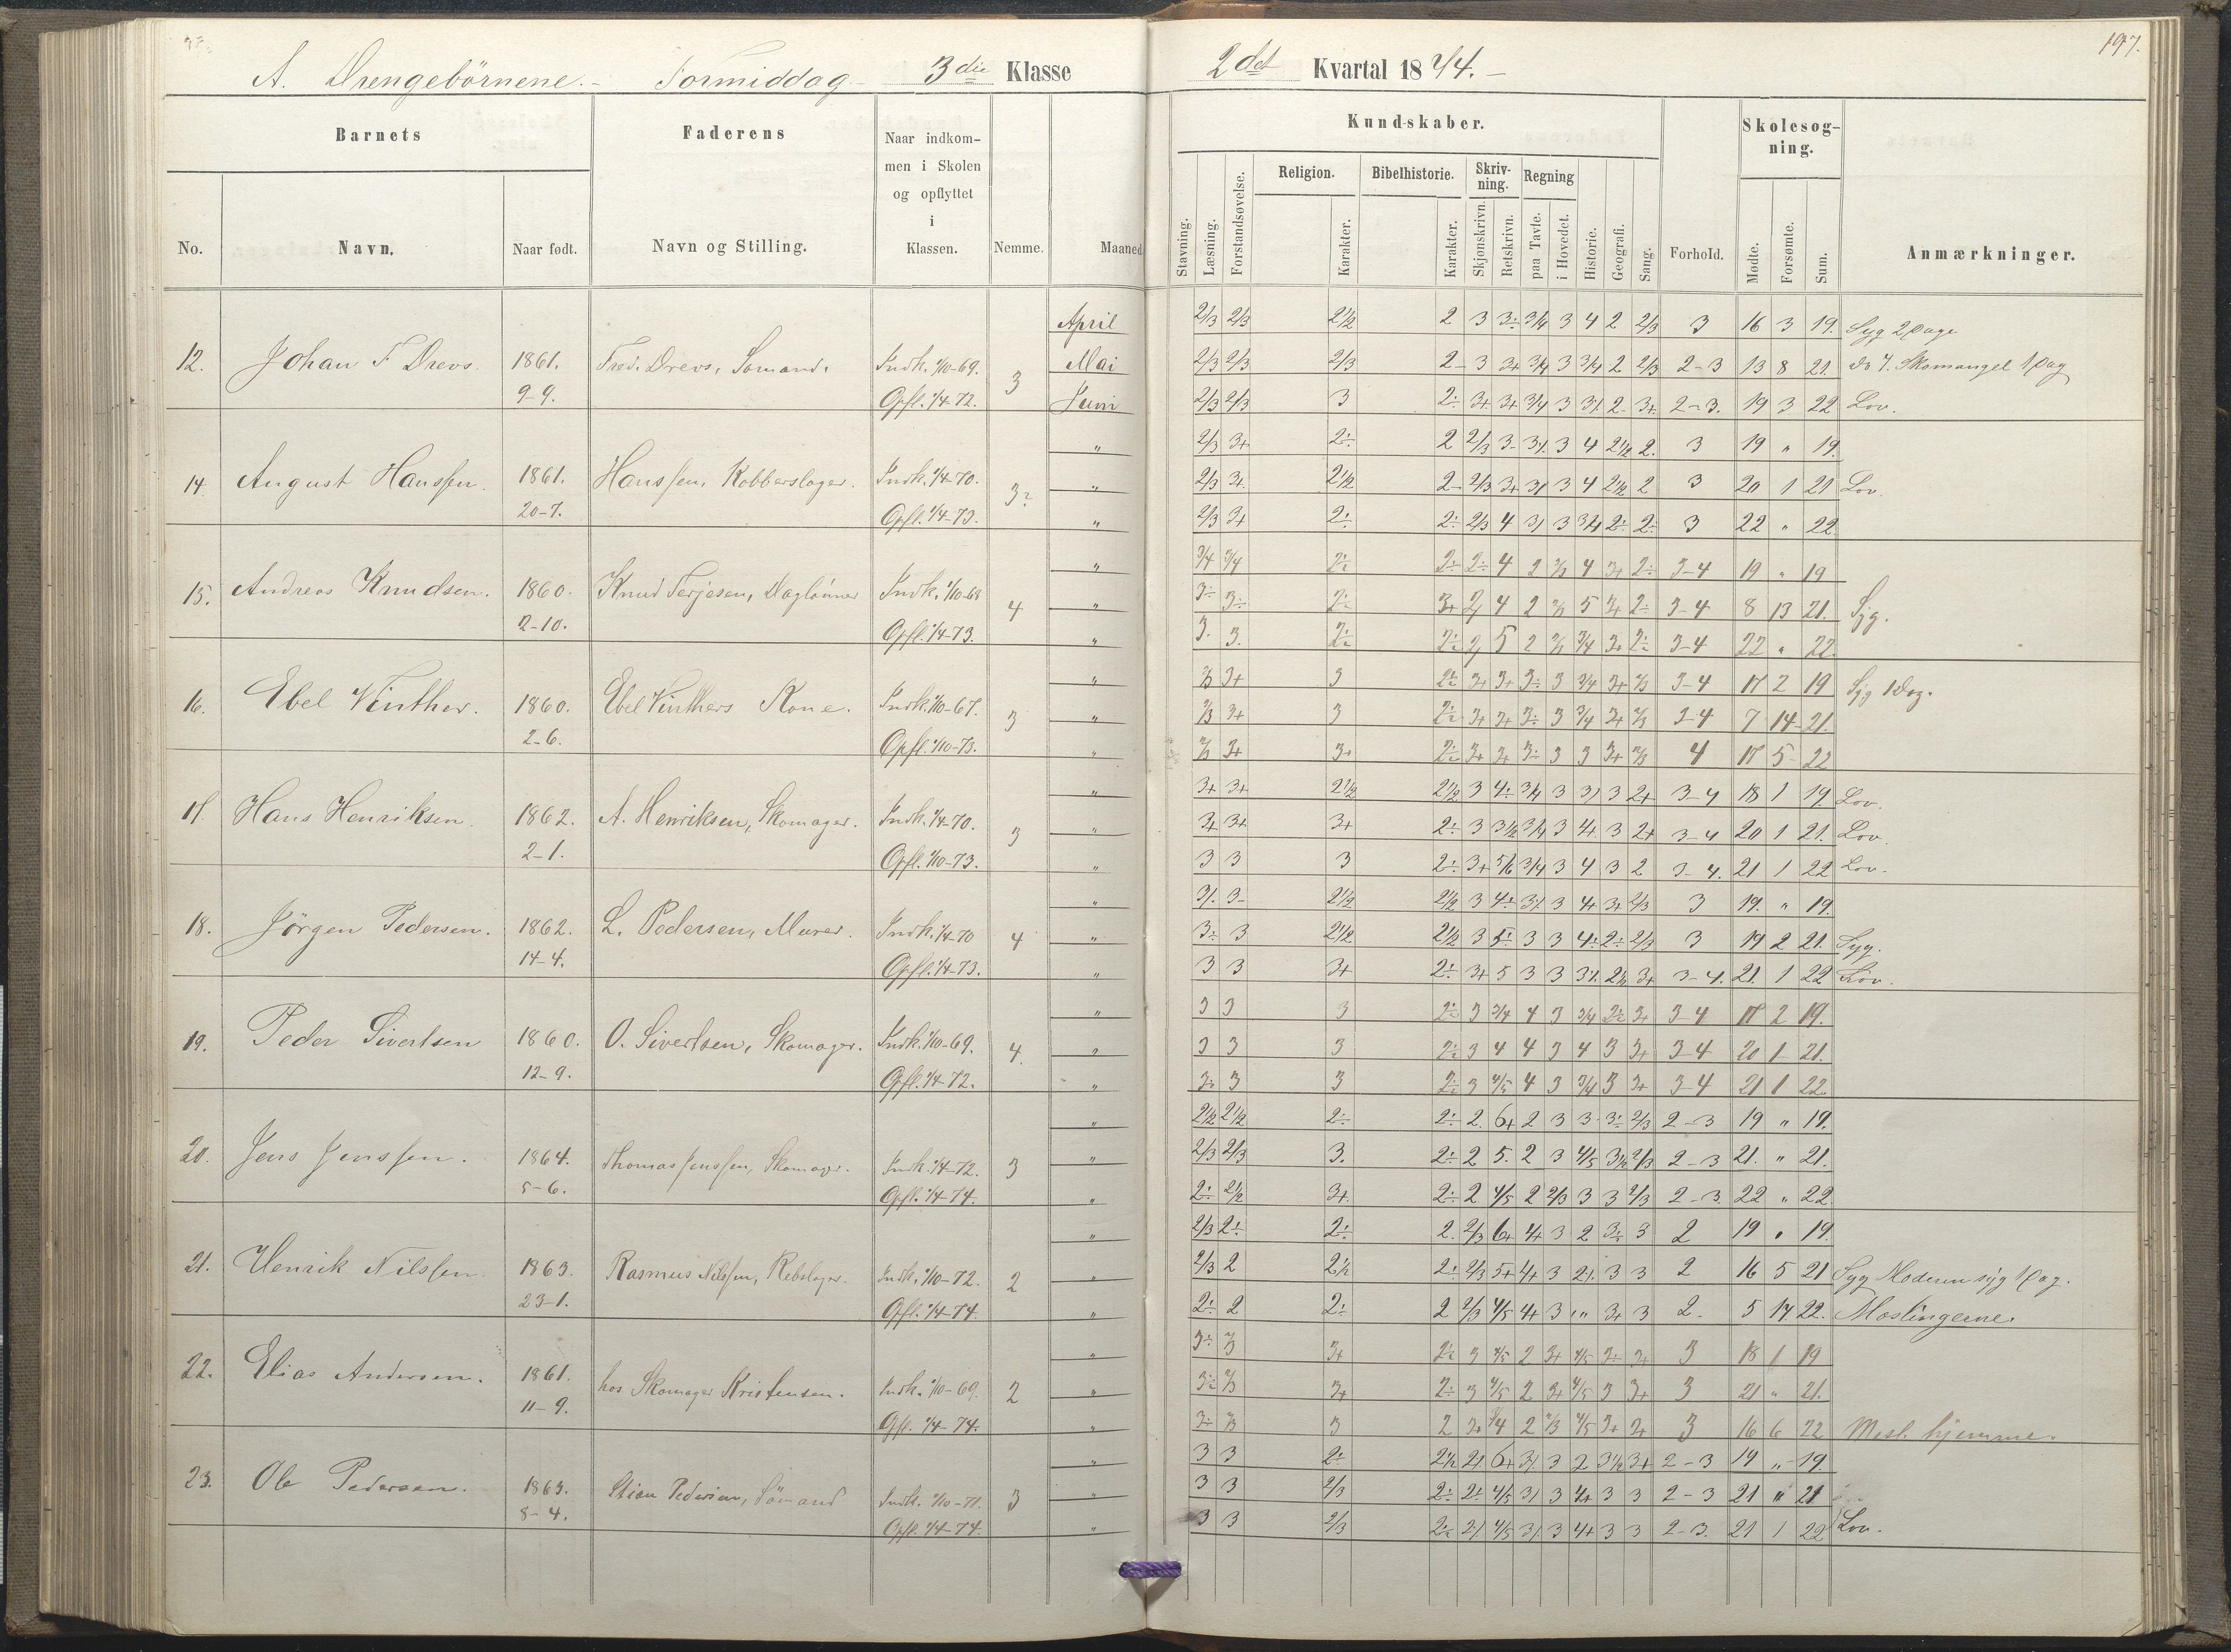 197.
A. Drengebörnene. - Formiddag - 3die Klasse
2det Kvartal 1874. -
Barnets
Faderens
Naar indkom-
men i Skolen
og opflyttet
i
Klassen.
No.
Navn.
Naar født.
Navn og Stilling.
Nemme.
Maaned
Kundskaber.
Skolesog-
ning.
Stavning.
Læsning.
Forstandsøvelse.
Religion.
Karakter.
Bibelhistorie.
Karakter.
Skriv-
ning.
Skjønskrivn.
Retskrivn.
Regning
paa Tavle.
i Hovedet.
Historie.
Geografi.
Sang.
Forhold.
Mødte.
Forsømte.
Sum.
Anmærkninger.
12. Johan F Drevs. 1861. 9-9. Fred. Drevs, Sömand. Indk. 1/10-69. Opfl. 1/4-72. 3
April 2/3 2/3 2 1/2 2 3 3÷ 3/4 3 4 2 2/3 3 16 3 19. Syg 2 Dage
Mai 2/3 2/3 2/3 2- 3 3+ 3/4 3 3/4 2 2/3 2-3 13 8 21. do 7. Skomangel 1 Dag
Juni 2/3 2/3 3 2÷ 3+ 3+ 3/4 3 2- 3+ 2-3. 19 3 22 Lov.
14. August Hanssen. 1861. 20-7. Hanssen, Kobberslager. Indk. 1/4-70. Opfl. 1/4-73.
" 2/3 3+ 2÷ 2 2/3 3- 3 4 2 1/2 2. 3 19 " 19.
" 2/3 3+ 2 1/2 2- 2/3 3+ 3 4 2 1/2 2 3 20 1 21 Lov.
" 2/3 3+ 2÷ 2÷ 2/3 4 3 3/4 2÷ 2÷ 3 22 " 22
15. Andreas Knudsen. 1860. 2-10. Knud Terjesen, Daglönner Indk. 1/10-68 Opfl. 1/4-73. 4
" 3/4 3/4 2÷ 2÷ 2÷ 4 2 4 3+ 2÷ 3-4 19 " 19
" 3÷ 3÷ 2÷ 3+ 4 2 5 3+ 2÷ 3-4 8 13 21. Syg.
" 3. 3. 2÷ 2÷ 5 2 3/4 3+ 2÷ 3-4 22 " 22.
16. Ebel Vinther. 1860. 2-6. Ebel Vinthers Kone. Indk. 1/10-67. Opfl. 1/10-73. 3
" 2/3 3+ 3 2÷ 3+ 3+ 3÷ 3 3/4 3+ 2/3 3-4 17 2 19 Syg 1 Dag.
" 2/3 3+ 3 2÷ 3+ 3+ 3÷ 3 3/4 3+ 2/3 3-4 7 14 21.
" 2/3 3+ 3+ 2÷ 3+ 3+ 3÷ 3 3 3+ 2/3 4 17 5 22
17. Hans Henriksen. 1862. 2-1. A. Henriksen, Skomager. Indk. 1/4-70. Opfl. 1/10-73. 3
" 3+ 3+ 2 1/2 2 1/2 3 4÷ 3/4 3 3 2+ 3-4 18 1 19. Lov.
" 3+ 3+ 3+ 2÷ 3 3 1/2 3/4 3 4+ 3 2+ 3-4 20 1 21. Lov.
" 3 3 3 2÷ 3+ 5/6 3/4 3 4 3 2 3-4. 21 1 22 Lov.
18. Jörgen Pedersen. 1862. 14-4. L. Pedersen, Murer. Indk. 1/4-70 Opfl. 1/4-73. 4
" 3- 2 1/2 2 1/2 3 4÷ 3 4+ 3+ 2/3 3 19. " 19.
" 3÷ 3 2 1/2 2 1/2 3 5÷ 3 3 4÷ 2÷ 2/3 3 19 2 21. Syg.
" 3 3 3+ 2÷ 3+ 5 3 3 2 1/2 3+ 3-4. 21. 1 22 Lov.
19. Peder Sivertsen 1860. 12-9. O. Sivertsen, Skomager. Indk. 1/10-69. Opfl. 1/4-72. 4.
" 3 3 3 2÷ 3 3/4 4 3 3/4 2÷ 3+ 3-4 17 2 19.
" 3 3 3 2÷ 3 4 4 3 4 3 3+ 3-4 20 1 21.
" 3+ 3 3 2÷ 3 4/5 4 3 3/4 3 3+ 3-4 21 1 22
20. Jens Jenssen. 1864. 5-6. Thomas Jenssen, Skomager. Indk. 1/4-72. Opfl. 1/4-74. 3
" 2 1/2 2 1/2 2÷ 2÷ 2. 6+ 2 3 3 3÷ 2/3 2-3 19 " 19.
" 2/3 2/3 3. 2÷ 2 5. 2 3 4/5 3 1/2 2/3 2-3 21. " 21.
" 2÷ 2 1/2 3+. 2÷ 2 4/5 2 2/3 3 3 2/3 2-3. 22 " 22
21. Henrik Nilssen. 1863. 23-1. Rasmus Nilssen, Rebslager. Indk. 1/10-72. Opfl. 1/4-74. 2
" 2/3 2÷ 2÷ 2. 2/3 6+ 4+ 3 2 3÷ 3 2 19 " 19.
" 2/3 2 2 1/2 2÷ 2/3 5+ 4+ 3 3 3 2 16 5 21 Syg Moderen syg 1 Dag.
" 2÷ 2 2÷ 2 2/3 4/5 4+ 3 " 3+ 3 2. 5 17 22. Mæslingerne.
22. Elias Andersen. 1861. 11-9. hos Skomager Kristensen. Indk. 1/10-69. Opfl. 1/4-74. 2
" 3÷ 2/3 3+ 2÷ 3 4/5 2 3+ 4/5 3÷ 3+ 3 18 1 19
" 3÷ 2/3 3+ 2÷ 3 4/5 2 3+ 4/5 3 3+ 3 21 " 21.
" 3÷ 2/3 3 2 3+ 2 2/3 4/5 3+ 3+ 3 16 6 22 hjemme.
23. Ole Pedersen. 1863. 8-4. Pedersen, Sömand Indk. 1/10-71. Opfl. 1/4-74. 3
" 3 3 2÷ 2 1/2 6+ 3 2 3 1/2 3+ 2-3 19 " 19.
" 3 3 2/3 2÷ 2÷ 4/5 3 4+ 3 3 2-3 21 " 21
" 3 3 2/3 2÷ 4/5 3 4+ 3 3 2-3. 21 1 22 Lov.